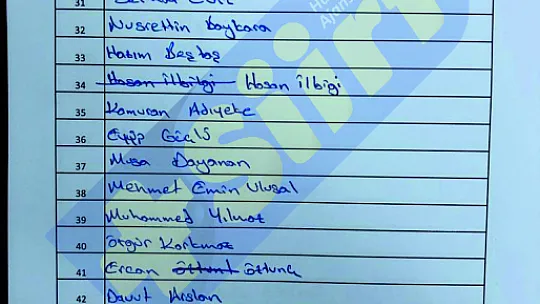 31
32 Nusrettin Baykara
33 Hasım Beştaş
34 Hasan İlbilgi Hasan İlbigi
35 Kamuran Adıyeke
36 Eyyip
37 Musa Dayanan
38 Mehmet Emin Ulusal
39 Muhammed Yılmaz
40 Özgür Korkmaz
41 Ercan
42 Davut Arslan
siirt
Ajans